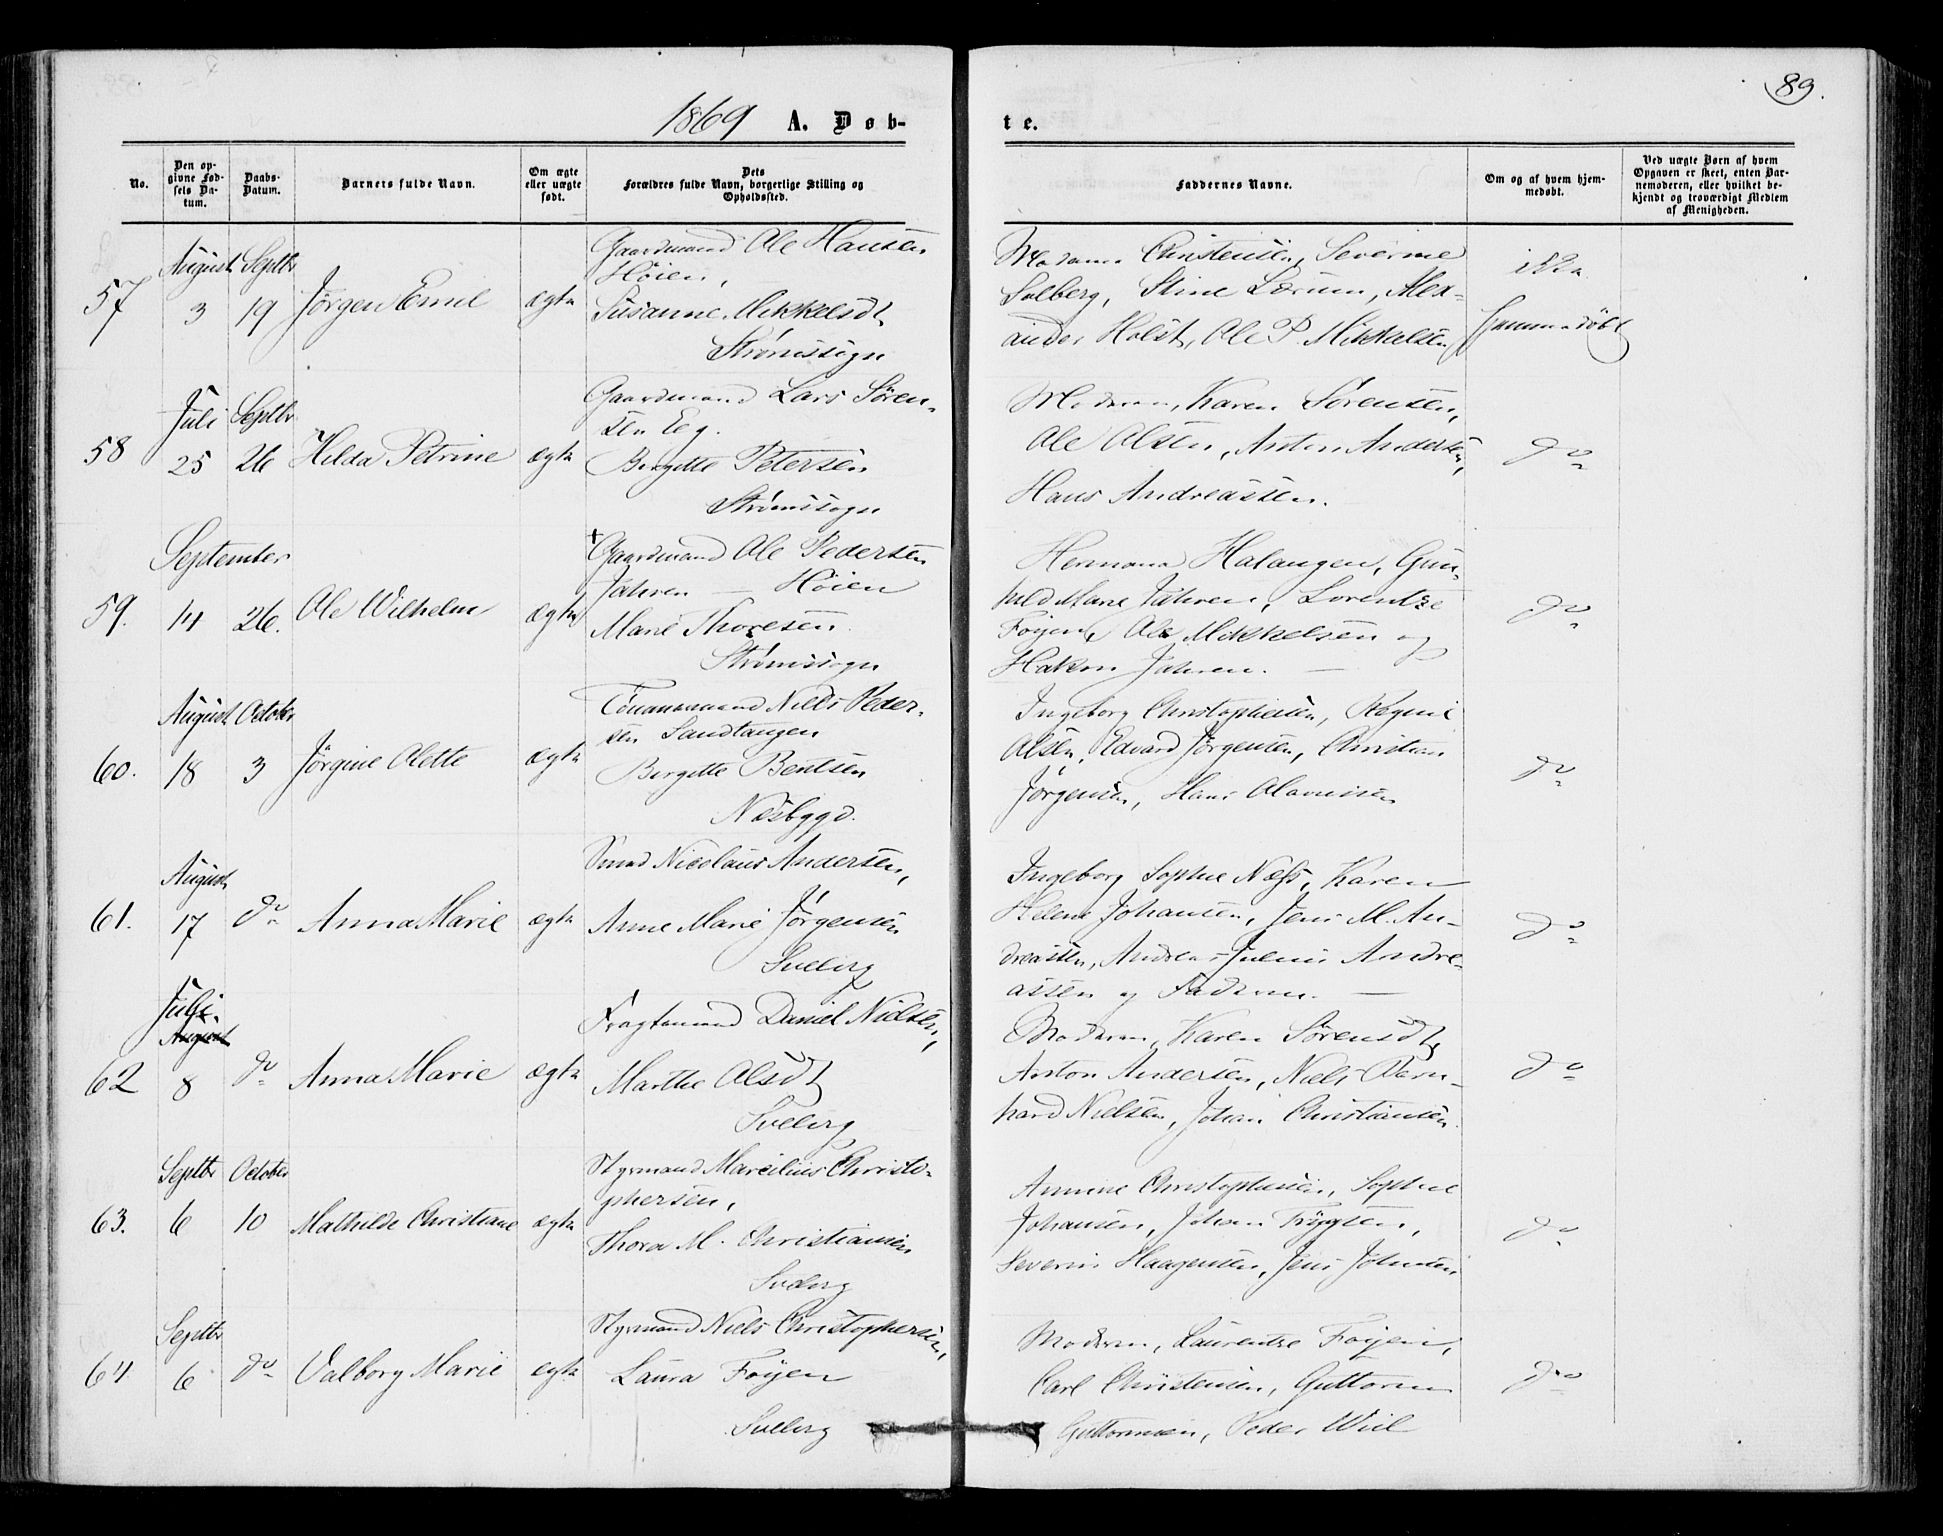 89.
1869 A. Døb-
te.
No.
Den op-
givne Fød-
sels Da-
tum.
Daabs-
Datum.
Barnets fulde Navn.
Om ægte
eller uægte
født.
Dets
Forældres fulde Navn, borgerlige Stilling og
Opholdssted.
Faddernes Navne.
Om og af hvem hjem-
medøbt.
Ved uægte Børn af hvem
Opgaven er skeet, enten Bar-
nemoderen, eller hvilket be-
kjendt og troværdigt Medlem
af Menigheden.
57
August
3
Septbr
19
Jørgen Emil
ægte
Gaardmand Ole Hansen
Høien,
Susanne Mikkelsdt
Strømssogn
Moderen Christensen, Severine
Solberg, Stine Lærum, Alex-
ander Holst, Ole P. Mikkelsen
ikke
hjemmedøbt
58
Juli
25
Septbr
26
Hilda Petrine
ægte
Gaardmand Lars Søren-
sen Eeg.
Birgitte Petersen
Strømssogn
Moderen, Karen Sørensen,
Ole Olsen, Anton Andersen,
Hans Andreassen.
do
59.
September
14
26.
Ole Wilhelm
ægte
+Gaardmand Ole Pedersen
Jahren — Høien
Marie Thoresen
Strømssogn
Hermana Halangen, Gun-
hild Marie Jahren, Lorentze
Føyen, Ole Mikkelsen og
Hakon Jahren. —
do
60.
August
18
October
3
Jørgine Olette
ægte
Niels Peder-
sen Sandtangen
Birgitte Bentsen
Næsbygd.
Ingeborg Christophersen, Regine
Olsen, Edvard Jørgensen, Christian
Jørgensen, Hans Olavesen
do
61.
August
17
do
Anna Marie
ægte
Smed Nicolaus Andersen,
Anne Marie Jørgensen
Svelvig
Ingeborg Sophie Næss, Karen
Helene Johansen, Jens M. An-
dreassen, Andreas Julius Andre-
assen og Faderen. —
do
62
Juli.
August
8
do
Anna Marie
ægte
Fragtemand Daniel Nielsen,
Marthe Olsdt
Svelvig
Moderen, Karen Sørensdt,
Anton Andersen, Niels Bern-
hard Nielsen, Johan Christiansen.
do
63.
Septbr
6
October
10
Mathilde Christiane
ægte
Styrmand Marcilius Christo-
phersen,
Thora M. Christiansen
Svelvig
Annine Christophersen, Sophie
Johansen, Johan Trygsen,
Severin Haagensen, Jens Johnsen.
do
64
Septbr
6
do
Valborg Marie
ægte
Styrmand Niels Christophersen,
Laura Føyen
Svelvig
Moderen, Laurentze Føyen,
Carl Christensen, Guttorm
Guttormsen, Peder Wiel
do